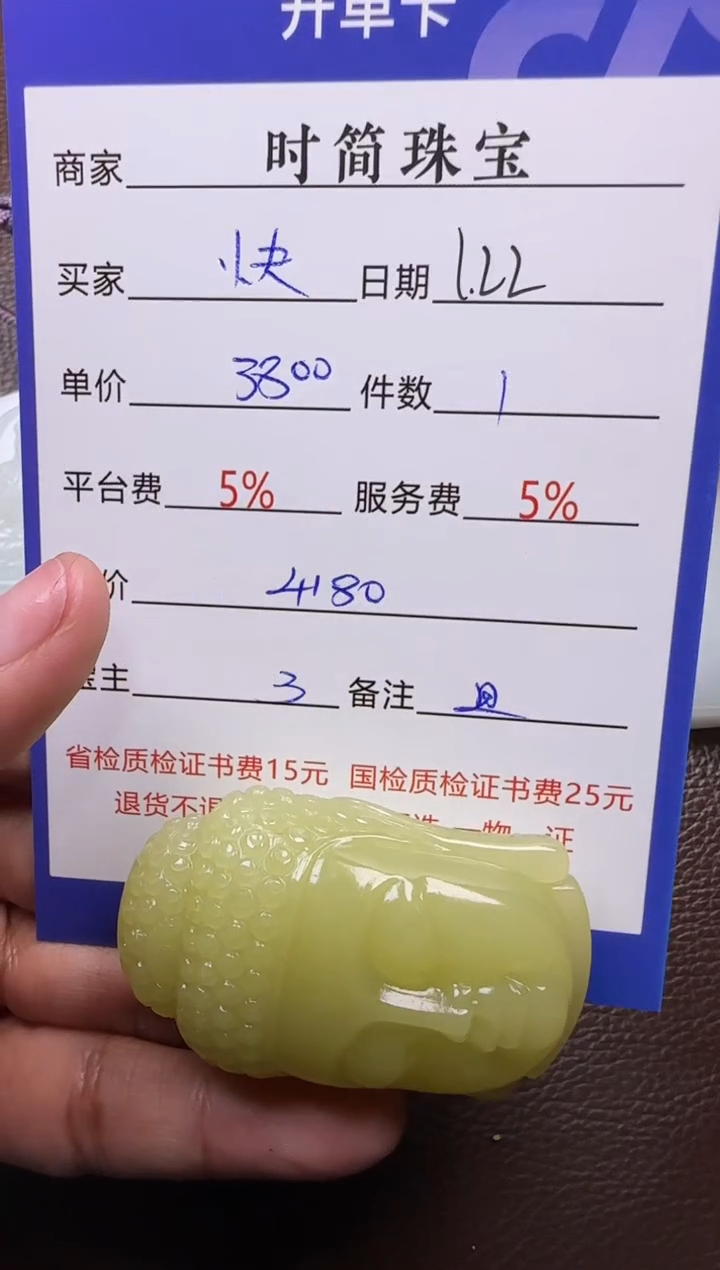 开单卡
商家 时简珠宝
买家 快 日期 1.22
单价 3800 件数 1
平台费 5% 服务费 5%
价 4180
主 3 备注
省检质检证书费15元 国检质检证书费25元
退货不退 一物一证